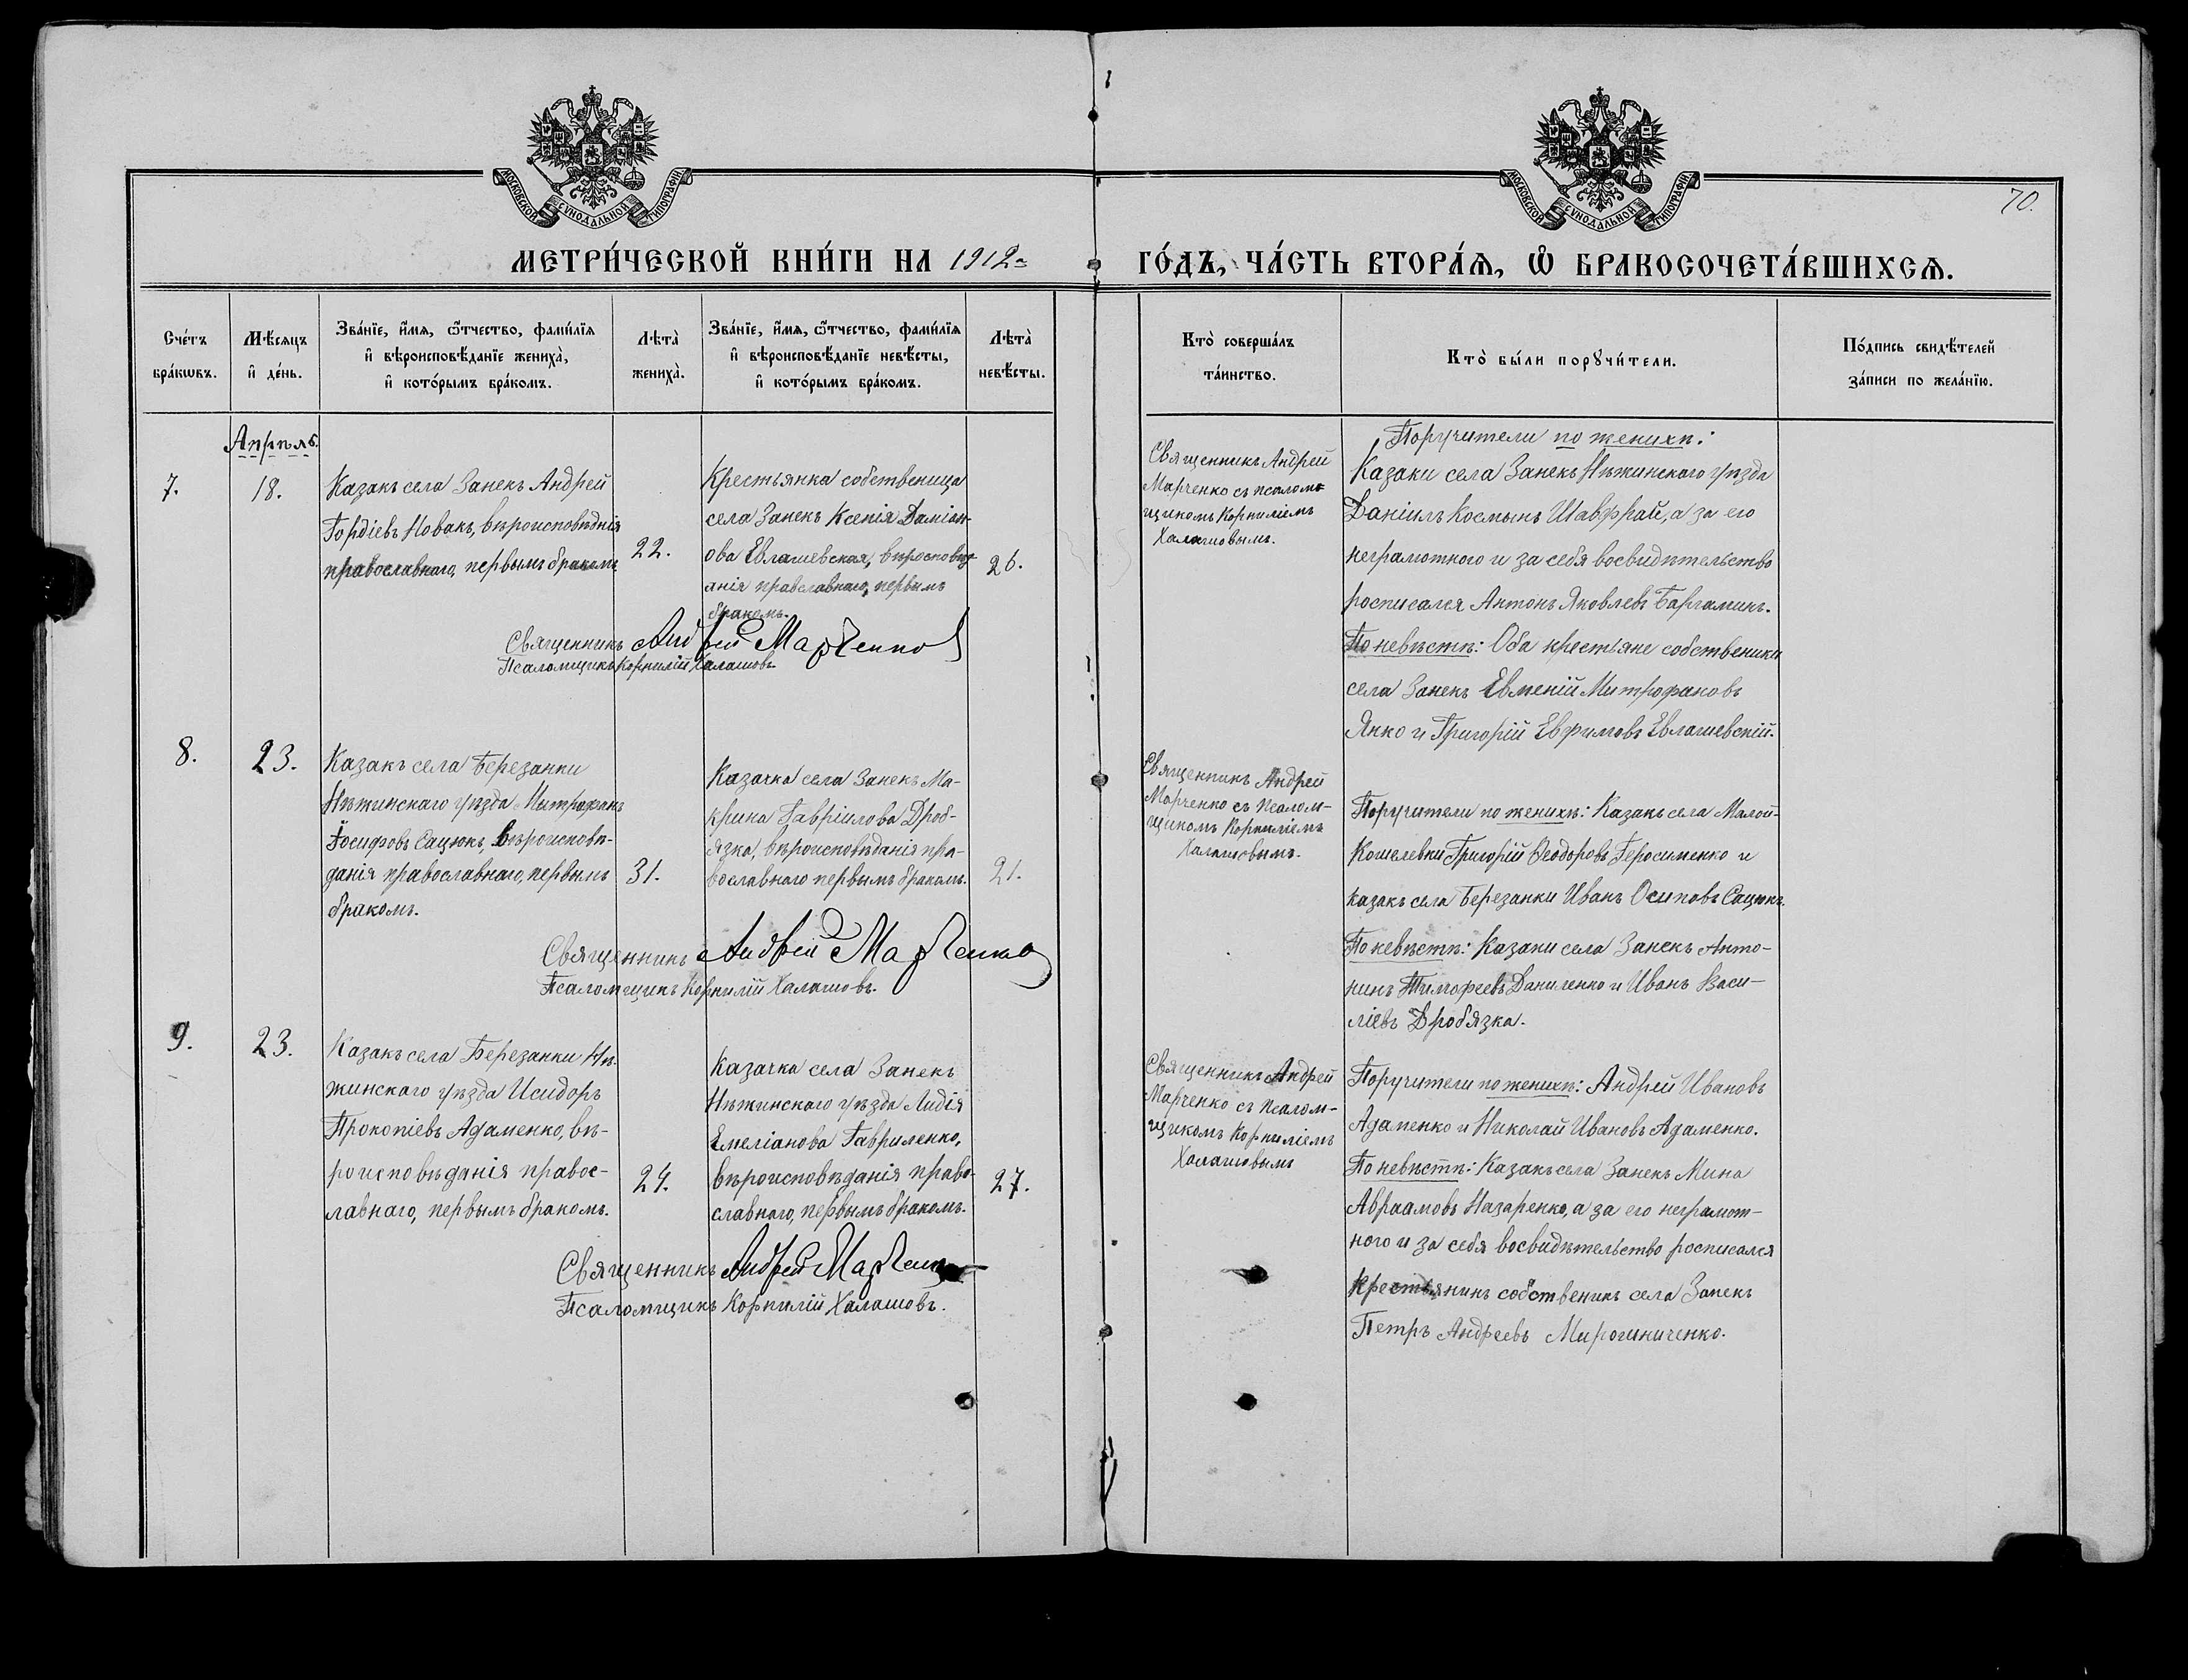 МОСКОВСКОЙ СѴНОДАЛЬНОЙ ТИПОГРАФІИ
МОСКОВСКОЙ СѴНОДАЛЬНОЙ ТИПОГРАФІИ
70.
МЕТРИ́ЧЕСКОЙ КНИ́ГИ НА 1912 ГО́ДЪ, ЧА́СТЬ ВТОРА́Ѧ, Ѡ҆ БРАКОСОЧЕТА́ВШИХСѦ.
Сче́тъ
бра́кѡвъ.
Мѣ́сяцъ
и҆ де́нь.
Зва́нїе, и҆́мѧ, ѻ҆́тчество, фами́лїѧ
и҆ вѣроисповѣ́данїе жениха̀,
и҆ кото́рымъ бра́комъ.
Лѣта̀
жениха̀.
Зва́нїе, и҆́мѧ, ѻ҆́тчество, фами́лїѧ
и҆ вѣроисповѣ́данїе невѣ́сты,
и҆ кото́рымъ бра́комъ.
Лѣта̀
невѣ́сты.
Кто̀ соверша́лъ
та́инство.
Кто̀ бы́ли порꙋчи́тели.
По́дпись свидѣ́телей
за́писи по жела́нїю.
Апрѣль.
7.
18.
Казакъ села Занекъ Андрей
Гордіевъ Новакъ, вѣроисповѣднія
православнаго, первымъ бракомъ
22.
Крестьянка собственица
села Занекъ Ксенія Даміан-
ова Евлашевская, вѣроисповѣд-
анія православнаго, первымъ
бракомъ.
26.
Священникъ Андрей Марченко
Псаломщикъ Корнилій Халашовъ
Священникъ Андрей
Марченко съ псалом-
щикомъ Корниліемъ
Халашовымъ.
Поручители по женихѣ:
Казаки села Занекъ Нѣжинскаго уѣзда
Даніилъ Космынъ Шавфрай, а за его
неграмотного и за себя восвидѣтельство
росписался Антонъ Яковлевъ Барламикъ.
По невѣстѣ: Оба крестьяне собственики
села Занекъ Евменій Митрофановъ
Янко и Григорій Евфимовъ Евлашевскій.
8.
23.
Казакъ села Березанки
Нѣжинскаго уѣзда Митрофанъ
Іосифовъ Сацюкъ, вѣроисповѣ-
данія православнаго, первымъ
бракомъ.
31.
Казачка села Занекъ Ма-
крина Гавріилова Дроб-
язка, вѣроисповѣданія пра-
вославнаго первымъ бракомъ.
21.
Священникъ Андрей Марченко
Псаломщикъ Корнилій Халашовъ.
Священникъ Андрей
Марченко съ псалом-
щикомъ Корниліемъ
Халашовымъ.
Поручители по женихѣ: Казакъ села Малой-
Кошелевки Григорій Ѳеодоровъ Геросименко и
казакъ села Березанки Иванъ Осиповъ Сацюкъ.
По невѣстѣ: Казаки села Занекъ Анто-
нинъ Тимофеевъ Даниленко и Иванъ Васи-
ліевъ Дробязка.
9.
23.
Казакъ села Березанки Нѣ-
жинскаго уѣзда Исидоръ
Прокопіевъ Адаменко, вѣ-
роисповѣданія правос-
лавнаго, первымъ бракомъ.
24.
Казачка села Занекъ
Нѣжинскаго уѣзда Лидія
Емеліанова Гавриленко,
вѣроисповѣданія право-
славнаго, первымъ бракомъ.
27.
Священникъ Андрей Марченко
Псаломщикъ Корнилій Халашовъ.
Священникъ Андрей
Марченко съ псалом-
щикомъ Корниліемъ
Халашовымъ
Поручители по женихѣ: Андрей Ивановъ
Адаменко и Николай Ивановъ Адаменко.
По невѣстѣ: Казакъ села Занекъ Мина
Авраамовъ Назаренко, а за его неграмот-
ного и за себя восвидѣтельство росписался
Крестьянинъ собственикъ села Занекъ
Петръ Андреевъ Мирошниченко.